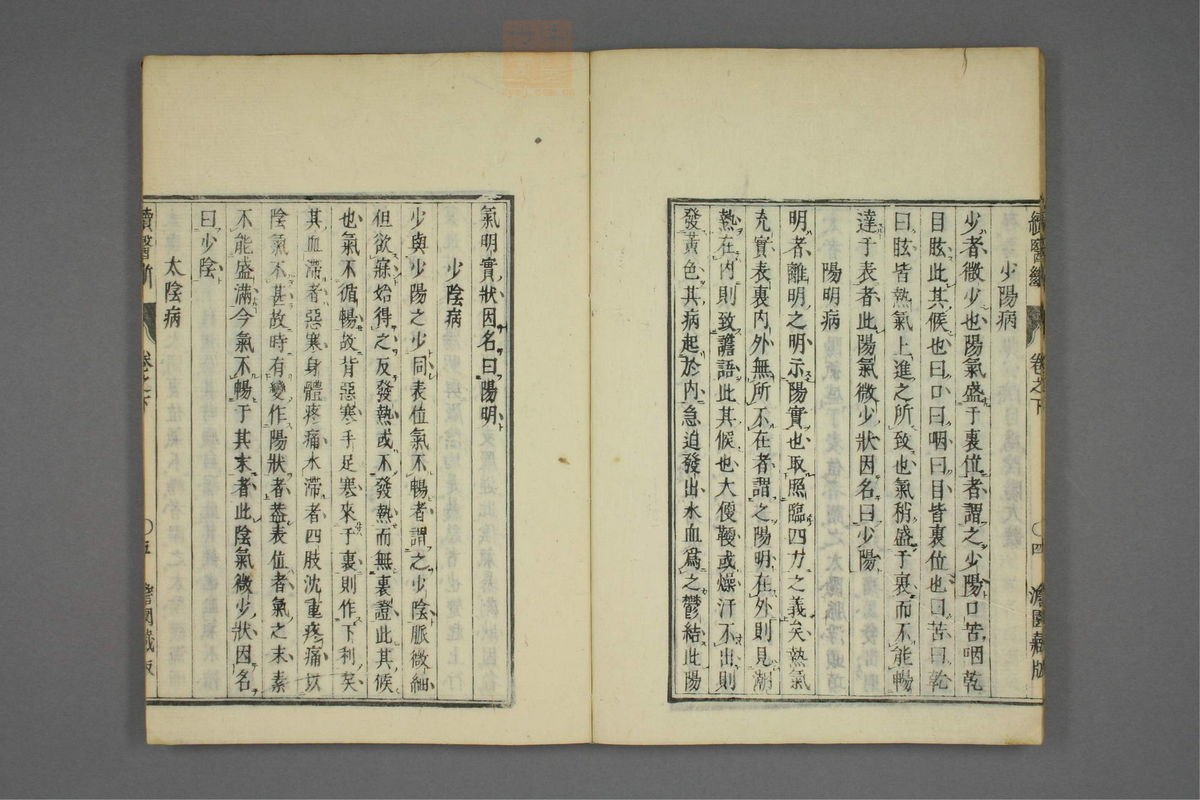 續醫斷 卷之下 〇四 澹園藏版
少陽病
少者微少也陽氣盛于裏位者謂之少陽口苦咽乾
目眩此其候也曰口曰咽曰目皆裏位也曰苦曰乾
曰眩皆熱氣上進之所致也氣稍盛于裏而不能暢
達于表者此陽氣微少狀因名曰少陽
陽明病
明者離明之明示陽實也取照臨四方之義矣熱氣
充實表裏内外無所不在者謂之陽明在外則見潮
熱在内則致譫語此其候也大便鞕或燥汗不出則
發黃色其病起於内急迫發出水血爲之鬱結此陽
氣明實狀因名曰陽明
少陰病
少與少陽之少同表位氣不暢者謂之少陰脈微細
但欲寐始得之反發熱或不發熱而無裏證此其候
也氣不循暢故背惡寒手足寒來于裏則作下利矣
其血滯者惡寒身體疼痛水滯者四肢沈重疼痛以
陰氣不甚故時有變作陽狀者葢表位者氣之末素
不能盛滿今氣不暢于其末者此陰氣微少狀因名
曰少陰
太陰病
續醫斷 卷之下 〇五 澹園藏版